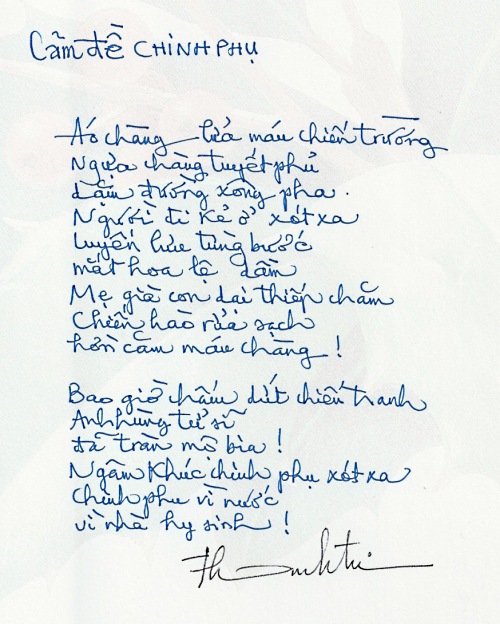 Cảm đề CHINH PHỤ
Áo chàng lửa máu chiến trường
Ngựa chàng tuyết phủ
dặm đường xông pha.
Người đi kẻ ở xót xa
luyến lưu từng bước
mắt hoa lệ dầm
Mẹ già con dại thiếp chăm
Chiến hào rửa sạch
hờn căm máu chàng!
Bao giờ chấm dứt chiến tranh
Anh hùng tử sĩ
đã tràn mộ bia!
Ngâm khúc chinh phụ xót xa
Chinh phu vì nước
vì nhà hy sinh!